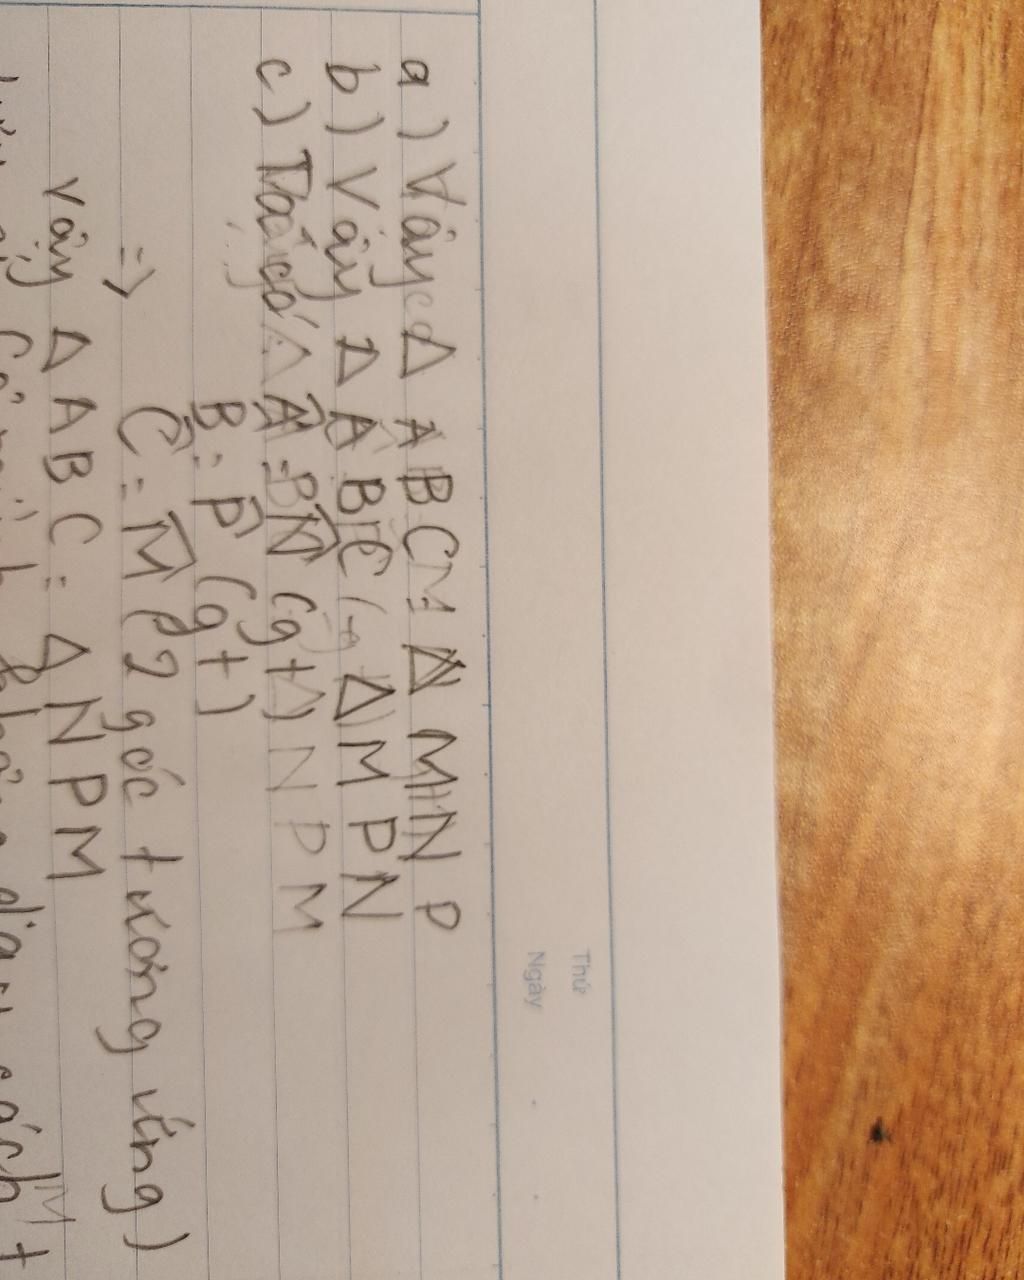 Thứ
Ngày
a) Vậy Δ ABC = Δ MNP
b) Vậy Δ ABC = Δ MPN
c) Ta có Â = N̂ (gt) N P M
B̂ = P̂ (gt)
=> Ĉ = M̂ (2 góc tương ứng)
Vậy Δ ABC = Δ NPM